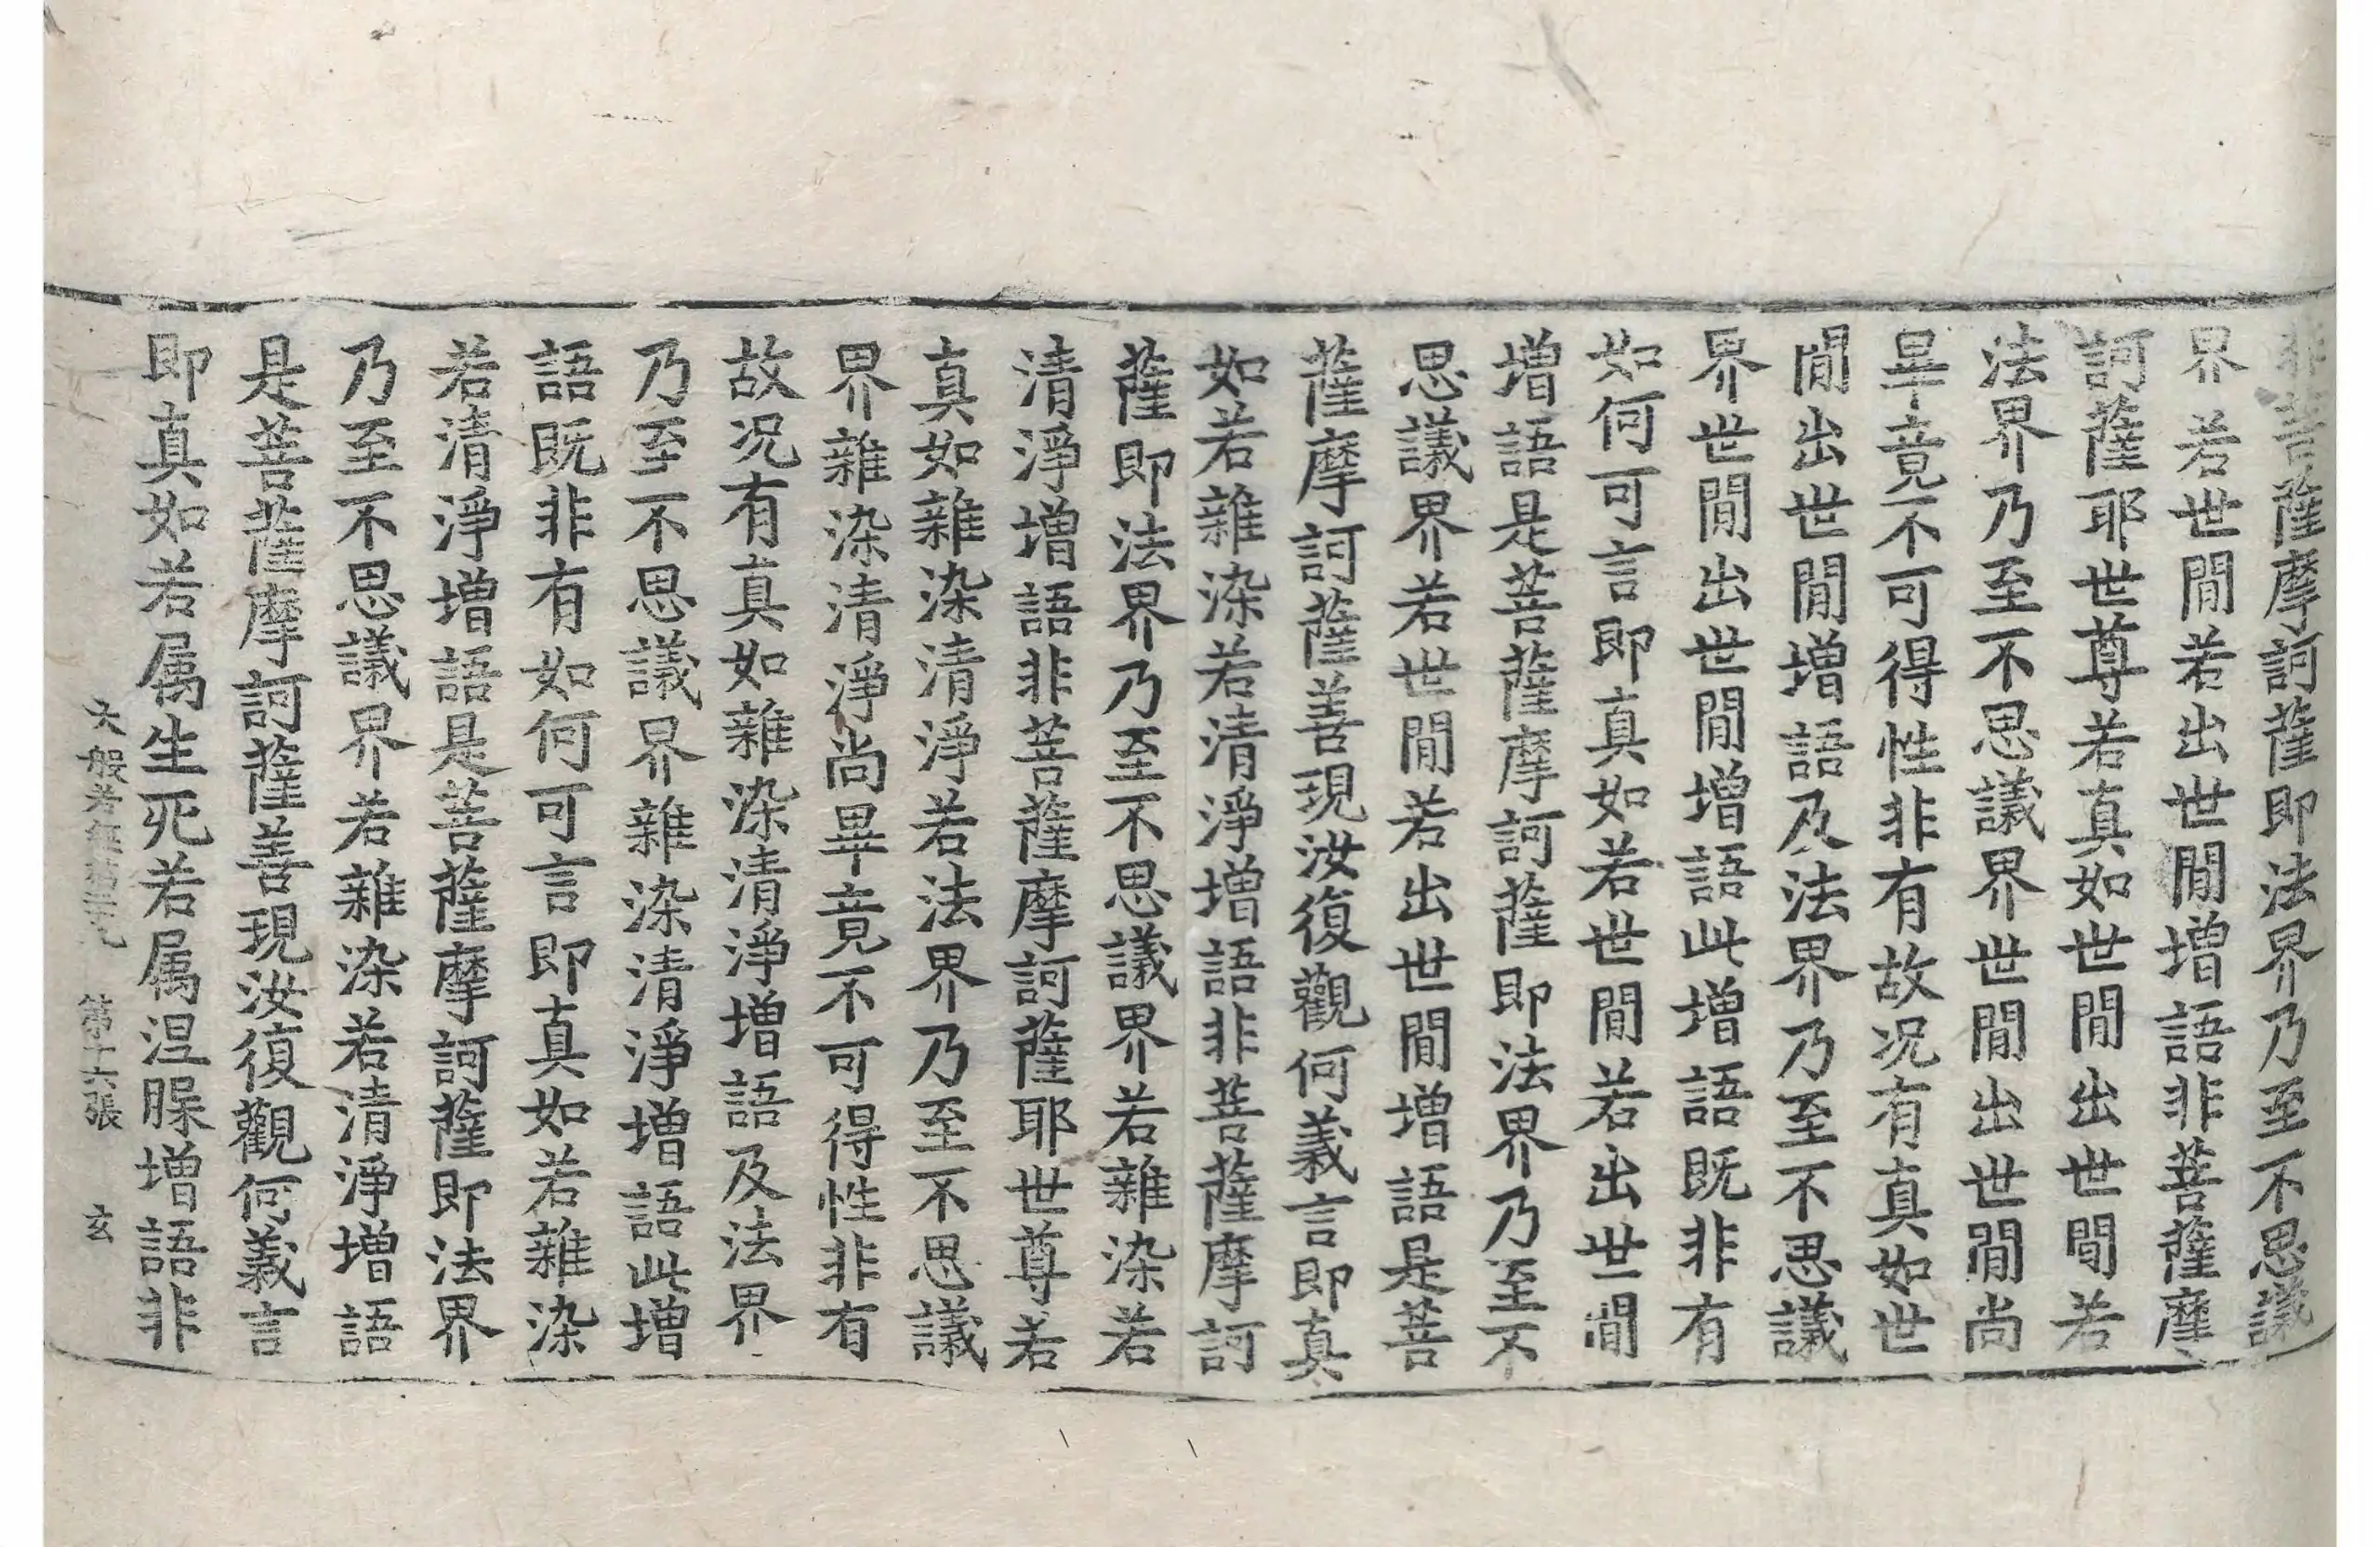 非菩薩摩訶薩即法界乃至不思議
界若世間若出世間增語非菩薩摩
訶薩耶世尊若真如世間出世間若
法界乃至不思議界世間出世間尚
畢竟不可得性非有故况有真如世
間出世間增語及法界乃至不思議
界世間出世間增語此增語既非有
如何可言即真如若世間若出世間
增語是菩薩摩訶薩即法界乃至不
思議界若世間若出世間增語是菩
薩摩訶薩善現汝復觀何義言即真
如若雜染若清淨增語非菩薩摩訶
薩即法界乃至不思議界若雜染若
清淨增語非菩薩摩訶薩耶世尊若
真如雜染清淨若法界乃至不思議
界雜染清淨尚畢竟不可得性非有
故况有真如雜染清淨增語及法界
乃至不思議界雜染清淨增語此增
語既非有如何可言即真如若雜染
若清淨增語是菩薩摩訶薩即法界
乃至不思議界若雜染若清淨增語
是菩薩摩訶薩善現汝復觀何義言
即真如若属生死若属涅槃增語非
大般若 第十六張 玄